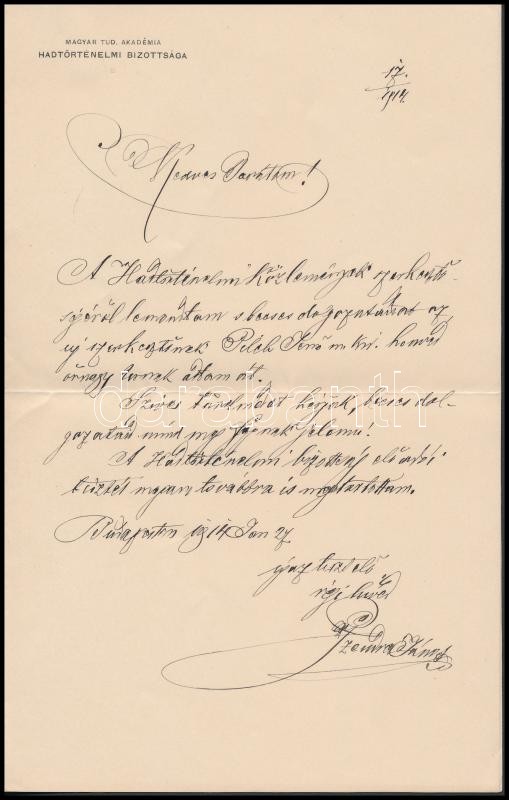 MAGYAR TUD. AKADÉMIA
HADTÖRTÉNELMI BIZOTTSÁGA
17.
1914.
Kedves Barátom!
A Hadtörténelmi Közlemények szerkesztő-
ségéről lemondtam s becses dolgozatát az
uj szerkesztőnek Pilch Jenő m. kir. honvéd
őrnagy urnak adtam át.
darabanth
Szives tudomását kérjek, becses dol-
gozatait mind meg fognak jelenni!
A Hadtörténelmi bizottság előadói
tisztét magam továbbra is megtartottam.
Budapesten 1914 Jan 27
igaz tisztelő
régi hived
Szendrei János